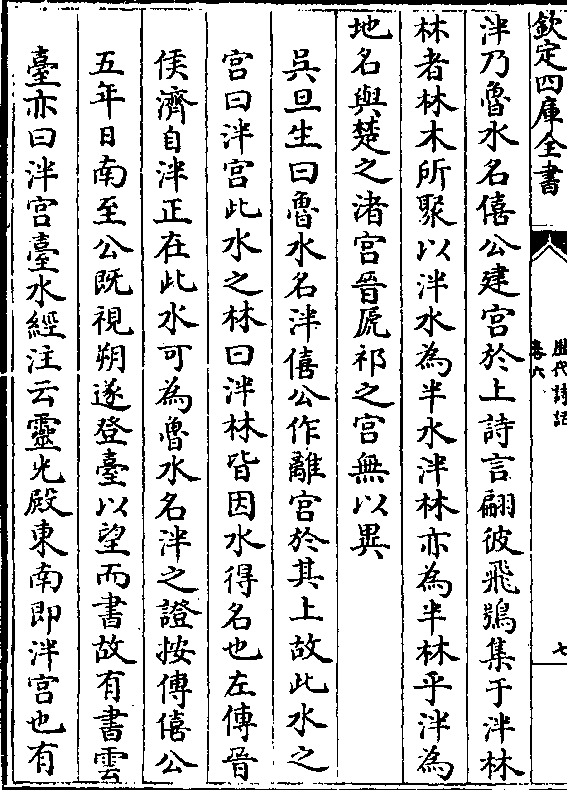 欽定四庫全書
歷代詩話
卷六
七
泮乃魯水名僖公建宮於上詩言翩彼飛鴞集于泮林
林者林木所聚以泮水為半水泮林亦為半林乎泮為
地名與楚之渚宮晉虒祁之宮無以異
吳旦生曰魯水名泮僖公作離宮於其上故此水之
宮曰泮宮此水之林曰泮林皆因水得名也左傳晉
侯濟自泮正在此水可為魯水名泮之證按傳僖公
五年日南至公既視朔遂登臺以望而書故有書雲
臺亦曰泮宮臺水經注云靈光殿東南即泮宮也有